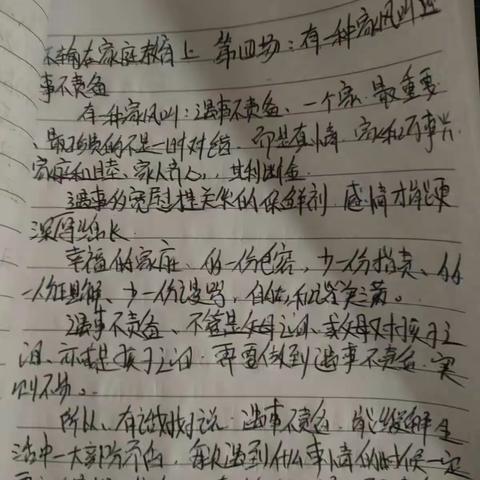 不输在家庭教育上 第四场：有一种家风叫遇
事不责备
有一种家风叫：遇事不责备、一个家、最重要
、最珍贵的不是一时对错、而是有情、家和万事兴
家庭和睦、家人齐心，其利断金。
遇事的宽慰是关系的保鲜剂、感情才能更
深厚绵长
幸福的家庭、多一份包容，少一份指责、多
一份理解、少一份谩骂，自然和谐美满。
遇事不责备、不管是父母之间、或父母对孩子之
间、亦或是孩子之间、再要做到遇事不责备、实
则不易。
所以、有话好好说、遇事不责备、能缓解生
活中一大部分矛盾，每次遇到什么事情的时候一定